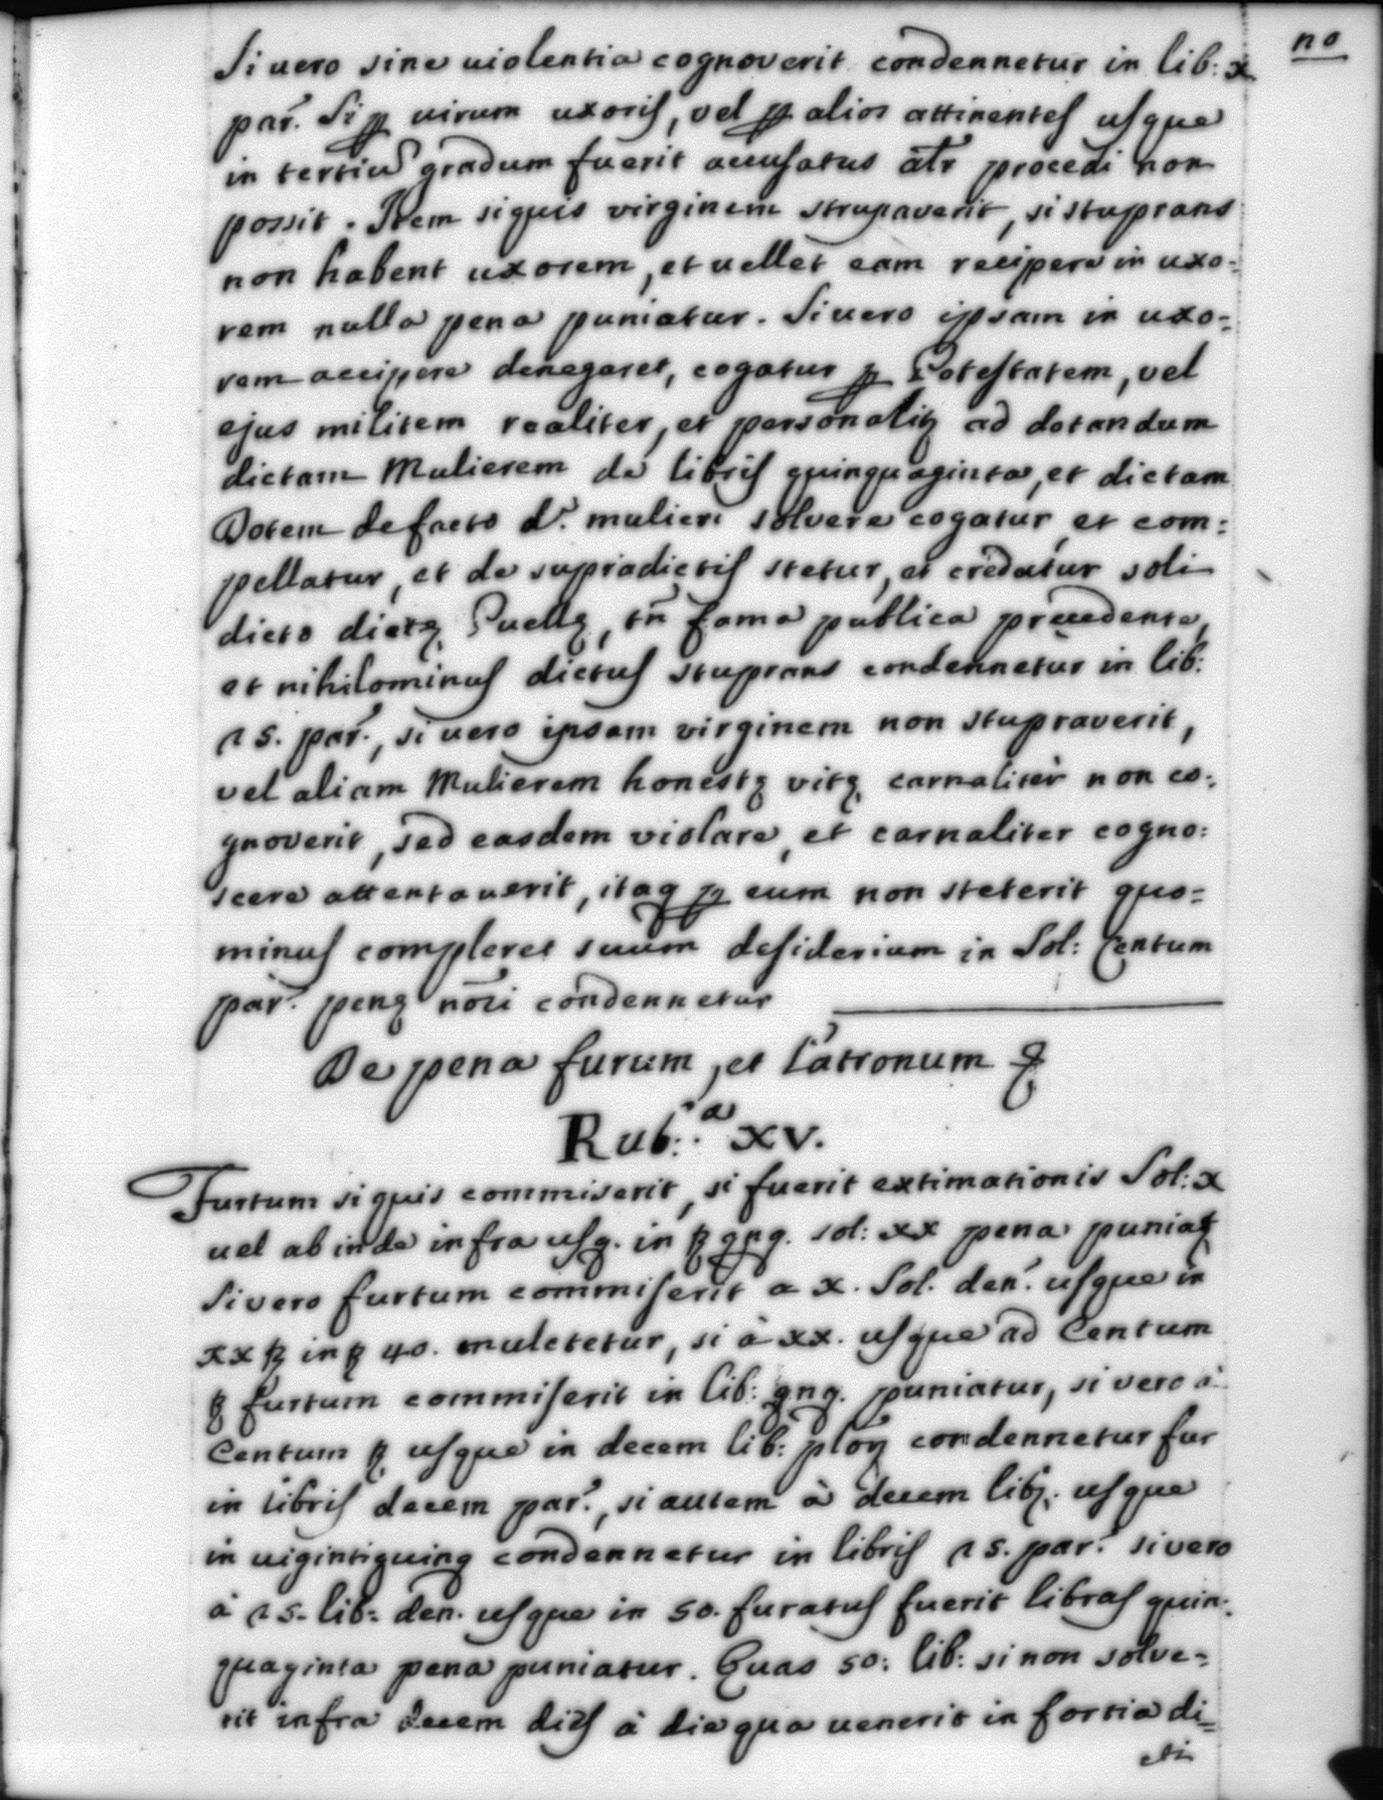 no
Si uero sine uiolentia cognoverit condennetur in lib: x
par. Si p uirum uxoris, vel p alios attinentes usque
in tertiũ gradum fuerit accusatus alr procedi non
possit. Item siquis virginem struparaverit, si stuprans
non habent uxorem, et uellet eam recipere in uxo=
rem nulla pena puniatur. Si uero ipsam in uxo=
rem accipere denegaret, cogatur p Potestatem, vel
ejus militem realiter, et personalitꝫ ad dotandum
dictam Mulierem de libris quinquaginta, et dictam
Dotem de facto d. mulieri solvere cogatur et com:
pellatur, et de supradictis stetur, et credatur soli
dicto dictę Puellę, tñ fama publica precedente,
et nihilominus dictus stuprans condennetur in lib:
25. par., si uero ipsam virginem non stupraverit,
vel aliam Mulierem honestę vitę carnaliter non co:
gnoverit, sed easdem violare, et carnaliter cogno:
scere attentauerit, itaq p eum non steterit quo=
minus compleret suum desiderium in Sol: Centum
par. penę nõri condennetur
De pena furum, et Latronum &
Rub:a XV.
Furtum siquis commiserit, si fuerit extimationis Sol: x
uel ab inde infra usq. in ꝑ qnq. sol: xx pena puniatꝫ
Si vero furtum commiserit a x. Sol. den. usque in
xx ꝑ in ꝑ 40. mulctetur, si à xx. usque ad Centum
ꝑ furtum commiserit in lib: qnq. puniatur, si vero à
Centum ꝑ usque in decem lib: condennetur fur
in libris decem par., si autem à decem libꝫ. usque
in uigintiquinq condennetur in libris 25. par. si vero
à 25. lib: den. usque in 50. furatus fuerit libras quin:
quaginta pena puniatur. Quas 50: lib: si non solve=
rit infra decem dies à die qua uenerit in fortia di=
cti